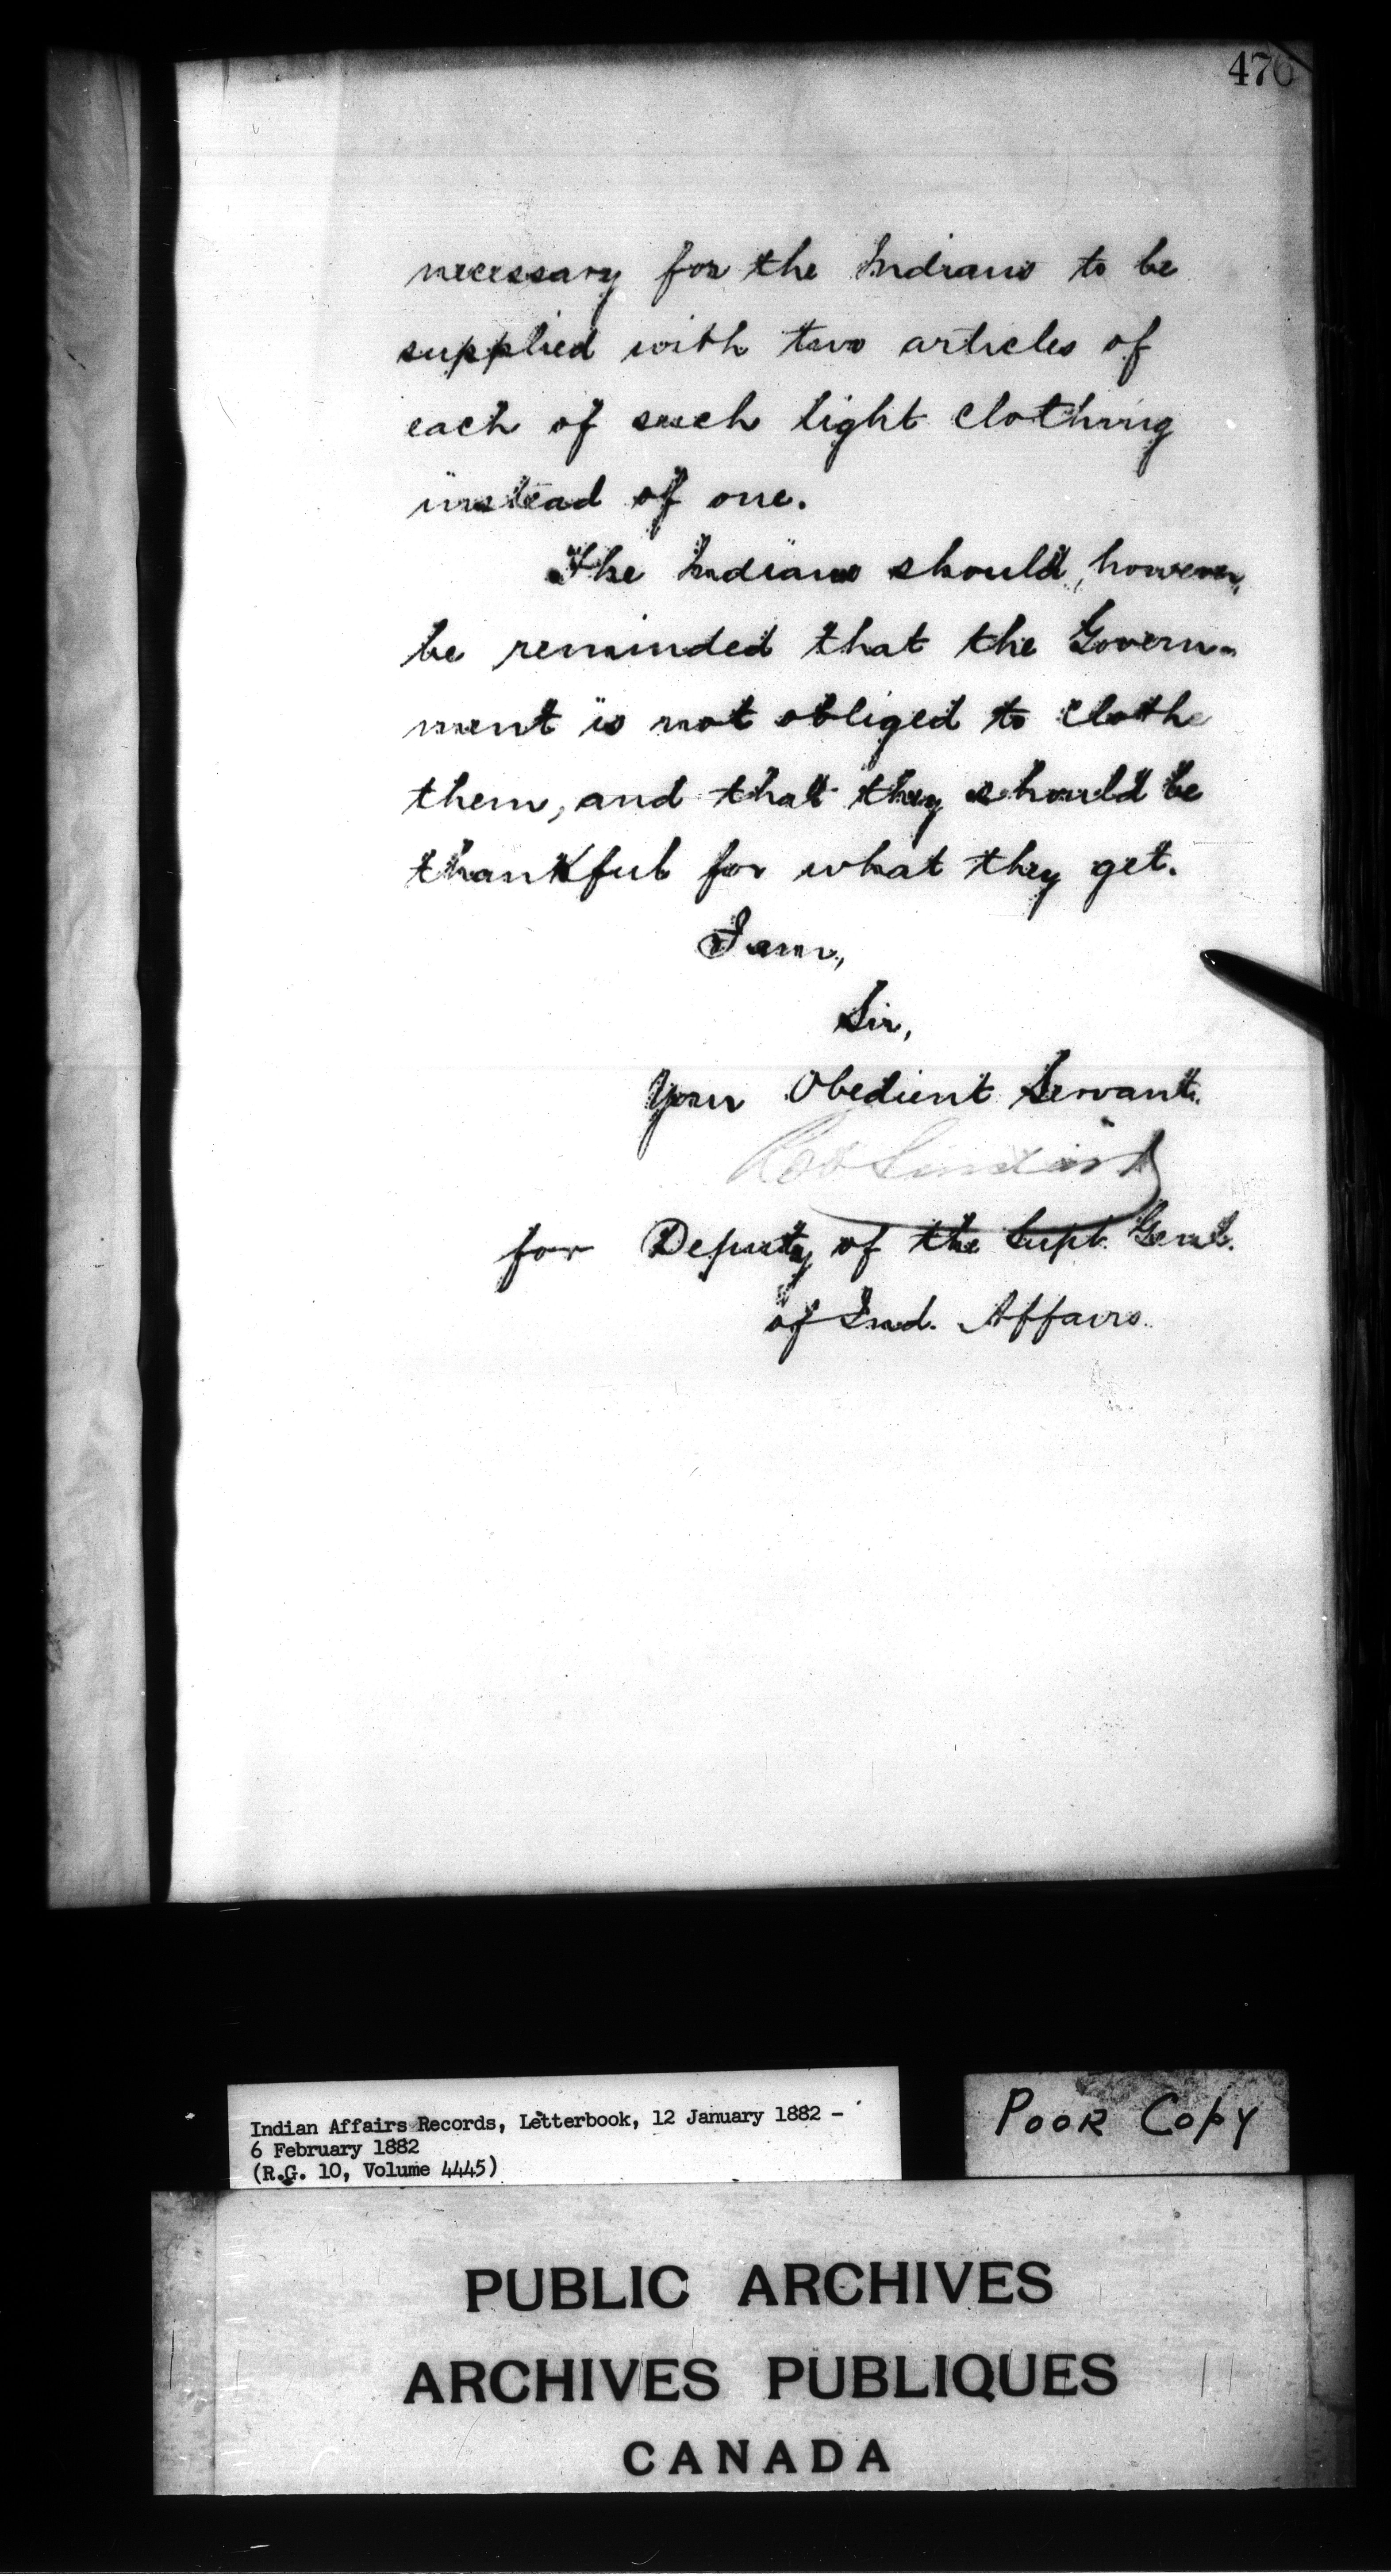 476
necessary for the Indians to be
supplied with two articles of
each of such light clothing
instead of one.
The Indians should, however,
be reminded that the Govern-
ment is not obliged to clothe
them, and that they should be
thankful for what they get.
I am,
Sir,
Your Obedient Servant.
for Deputy of the Supt. Genl.
of Ind. Affairs.
Indian Affairs Records, Letterbook, 12 January 1882 -
6 February 1882
(R.G. 10, Volume 4445)
POOR COPY
PUBLIC ARCHIVES
ARCHIVES PUBLIQUES
CANADA